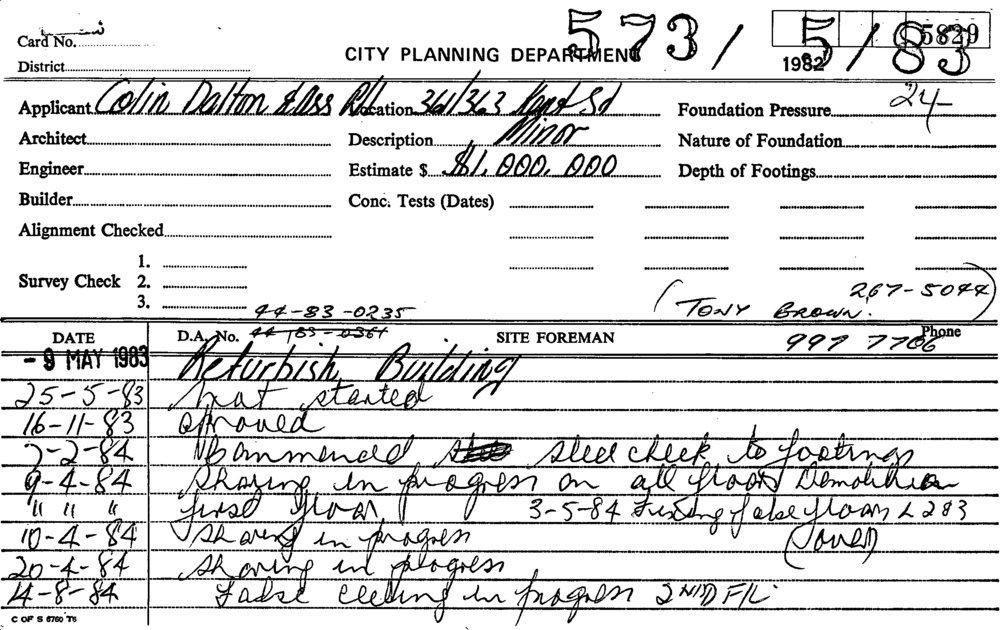 Card No. 573/5/83 5829
District CITY PLANNING DEPARTMENT 1982
Applicant Colin Dalton & Ass P/L Location 361/363 Kent St Foundation Pressure 24-
Architect Description Minor Nature of Foundation
Engineer Estimate $ $1,000,000 Depth of Footings
Builder Conc. Tests (Dates)
Alignment Checked
1.
Survey Check 2.
3.
44-83-0235 (TONY BROWN. 267-5044)
DATE D.A. No. 44-83-0361 SITE FOREMAN 997 7706 Phone
- 9 MAY 1983 Refurbish Building
25-5-83 not started
16-11-83 approved
7-2-84 steel check to footings
9-4-84 Shoring in progress on all floors Demolition
" " " first floor 3-5-84 Fixing false floors L 2 & 3
10-4-84 Shoring in progress
20-4-84 Shoring in progress
14-8-84 False ceeling in progress 2ND F/L
C OF S 6760 T6